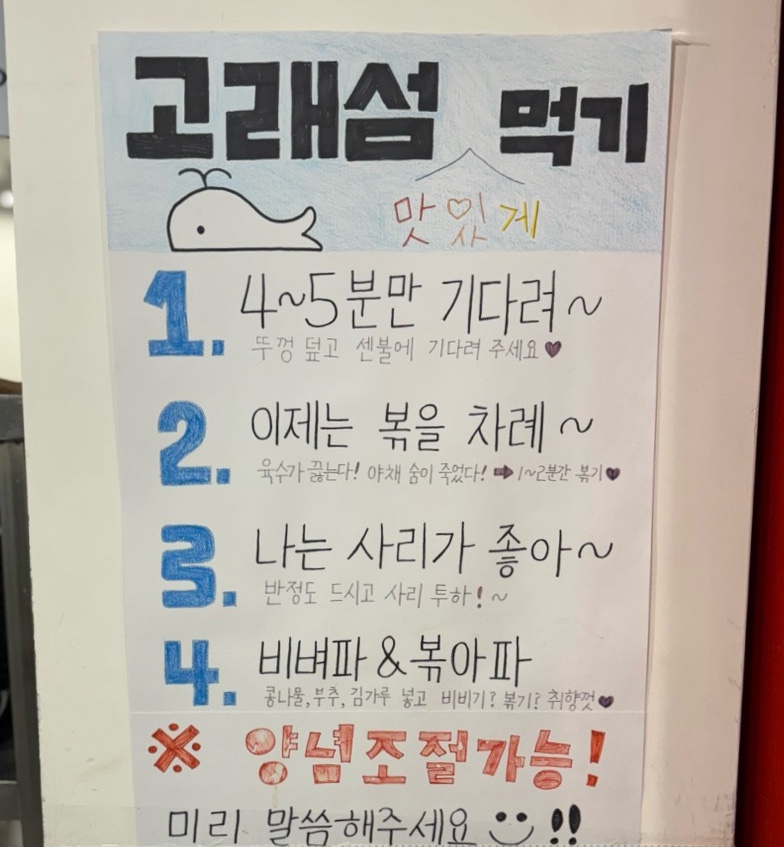 고래섬 먹기
맛있게
1. 4~5분만 기다려~
뚜껑 덮고 센불에 기다려 주세요♥
2. 이제는 볶을 차례~
육수가 끓는다! 야채 숨이 죽었다! ➡ 1~2분간 볶기♥
3. 나는 사리가 좋아~
반정도 드시고 사리 투하!~
4. 비벼파&볶아파
콩나물,부추,김가루 넣고 비비기? 볶기? 취향껏♥
※ 양념조절가능!
미리 말씀해주세요 !!